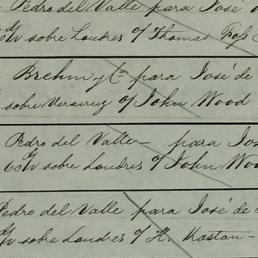 Pedro del Valle para José de
60 d/v sobre Londres o/ Thomas
Brehm y Ca para José de
sobre Veracruz o/ John Wood
Pedro del Valle para José
60 d/v sobre Londres o/ John Wood
Pedro del Valle para José de
d/v sobre Londres o/ H.